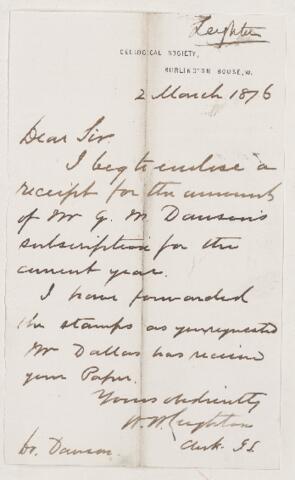 Leighton
GEOLOGICAL SOCIETY,
BURLINGTON HOUSE, W.
2 March 1876
Dear Sir.
I beg to enclose a
receipt for the amount
of Mr G. M. Dawson's
subscription for the
current year.
I have forwarded
the stamps as you requested
Mr Dallas has receive
your Paper.
Yours obediently
W. W. Leighton
Clerk. G S
Dr. Dawson